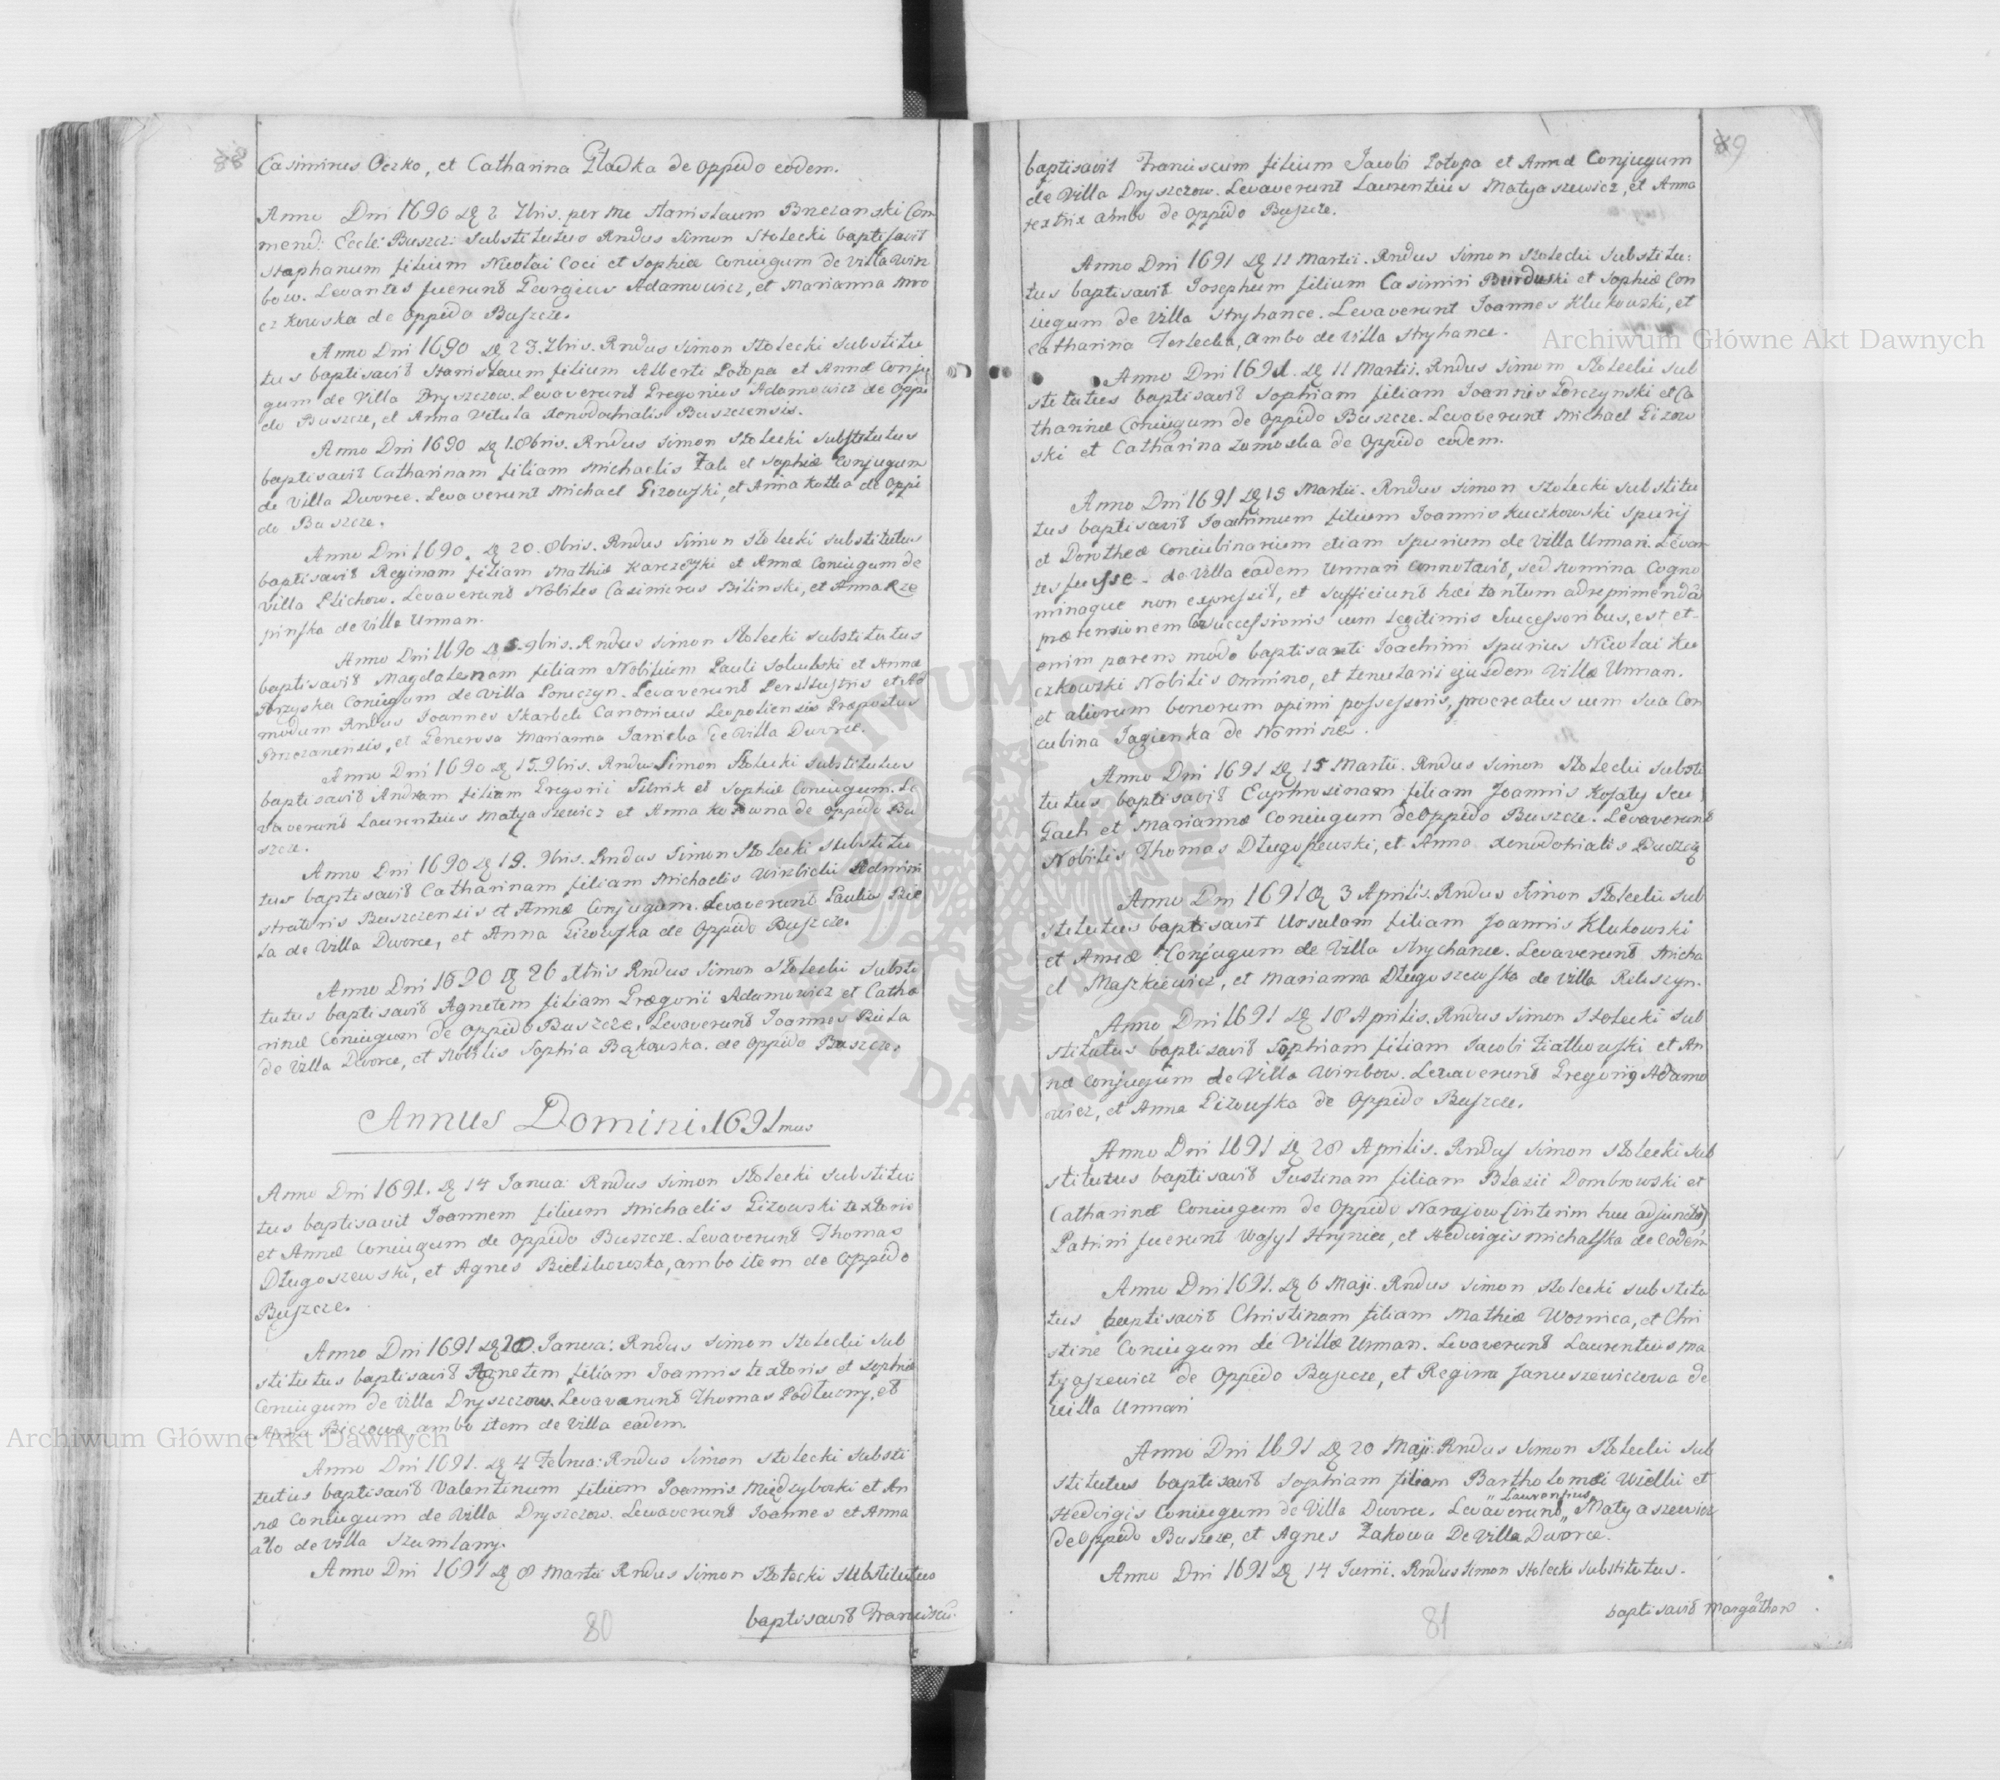 88
Casimirus Oczko, et Catharina Gładka de oppido eodem.
Anno Dni 1690 7bris. per me Stanislaum Brzezanski Com
mend: Eccle: Buszcz: substitutus Rndus Simon Stolecki baptisavit
Stephanum filium Nicolai Coci et Sophiæ Coniugum de Villa Wirz
bow. Levantes fuerunt Georgius Adamowicz, et Marianna Mro
czkowska de oppido Buszcze.
Anno Dni 1690 23. 7bris. Rndus Simon Stolecki substitu
tus baptisavit Stanislaum filium Alberti Potopa et Annæ Conju
gum de Villa Dryszczow. Levaverunt Gregorius Adamowicz de Oppi
do Buszcze, et Anna Vetula Xenodochialis Buszczensis.
Anno Dni 1690 1. 8bris. Rndus Simon Stolecki substitutus
baptisavit Catharinam filiam Michaelis Zak et Sophiæ Conjugum
de Villa Dworce. Levaverunt Michael Gizowski, et Anna Kotka de Oppi
do Buszcze.
Anno Dni 1690. 20. 8bris. Rndus Simon Stolecki substitutus
baptisavit Reginam filiam Mathiæ Karczcyki et Annæ Coniugum de
Villa Plichow. Levaverunt Nobiles Casimirus Bilinski, et Anna Rze
pinska de Villa Urman.
Anno Dni 1690 5. 9bris. Rndus Simon Stolecki substitutus
baptisavit Magdalenam filiam Nobilium Pauli Solubski et Annæ
Coniugum de Villa Poruczyn. Levaverunt Perillustris et Ad
modum Rndus Joannes Skarbek Canonicus Leopoliensis Præpositus
Brzezanensis, et Generosa Marianna Janicka de Villa Dworce.
Anno Dni 1690 15. 9bris. Rndus Simon Stolecki substitutus
baptisavit Andream filium Gregorii Sitnik et Sophiæ Coniugum. Le
vaverunt Laurentius Matyaszewicz et Anna de oppido Bu
szcze.
Anno Dni 1690 19. 9bris. Rndus Simon Stolecki substitu
tus baptisavit Catharinam filiam Michaelis Wirzbicki Admini
stratoris Buszczensis et Annæ Conjugum. Levaverunt Paulus Bie
la de Villa Dworce, et Anna Gizowska de Oppido Buszcze.
Anno Dni 1690 26 Xbris Rndus Simon Stolecki substi
tutus baptisavit Agnetem filiam Grægorii Adamowicz et Catha
rinæ Coniugum de Oppido Buszcze. Levaverunt Joannes Biela
de Villa Dworce, et Nobilis Sophia Bąkowska. de Oppido Buszcze.
Annus Domini. 1691mus
Anno Dni 1691. 14 Janua: Rndus Simon Stolecki substitu
tus baptisavit Joannem filium Michaelis Gizowski textoris
et Annæ Coniugum de Oppido Buszcze. Levaverunt Thomas
Długoszewski, et Agnes Bielikowska, ambo item de Oppido
Buszcze.
Anno Dni 1691 Janua: Rndus Simon Stolecki sub
stitutus baptisavit Agnetem filiam Joannis textoris et Sophiæ
Coniugum de Villa Dryszczow. Levaverunt Thomas Podłuony, et
Anna ambo item de Villa eadem.
Anno Dni 1691. 4 Februa: Rndus Simon Stolecki substi
tutus baptisavit Valentinum filium Joannis Międzyborki et An
næ Coniugum de Villa Dryszczow. Levaverunt Joannes et Anna
abo de Villa Szumlany.
Anno Dni 1691 8 Martii Rndus Simon Stolecki substitutus
baptisavit Franciscū.
80
89
baptisavit Franciscum filium Jacobi Potopa et Annæ Conjugum
de Villa Dryszczow. Levaverunt Laurentius Matyaszewicz, et Anna
textrix ambo de Oppido Buszcze.
Anno Dni 1691 11 Martii. Rndus Simon Stolecki substitu:
tus baptisavit Josephum filium Casimiri Burduski et Sophiæ Con
iugum de Villa Stryhance. Levaverunt Joannes Klukowski, et
Catharina Terlecka, ambo de Villa Stryhance.
Anno Dni 1691. 11 Martii. Rndus Simon Stolecki sub
stitutus baptisavit Sophiam filiam Joannis Porczynski et Ca
tharinæ Coniugum de Oppido Buszcze. Levaverunt Michael Gizow
ski et Catharina Zamoska de Oppido eodem.
Anno Dni 1691 19 Martii. Rndus Simon Stolecki substitu
tus baptisavit Joachimum filium Joannis Kuczkowski spurij
et Dorotheæ Concubinarium etiam spurium de Villa Urman. Levan
tes fuisse de Villa eadem Urman connotavit, sed nomina Cogno
minaque non expressit, et sufficiunt hæc tantum ad reprimendā
prætensionem Successionis cum legitimis Successoribus, est et-
enim parens modo baptisanti Joachimi spurius Nicolai Ku
czkowski Nobilis omnino, et tenutarii ejusdem Villæ Urman.
et aliorum bonorum opimi possessoris, procreatus cum sua Con
cubina Jagienka de Nomise.
Anno Dni 1691 15 Martii. Rndus Simon Stolecki substi
tutus baptisavit Euphrosinam filiam Joannis Kosaty seu
Gach et Mariannæ Coniugum de Oppido Buszcze. Levaverunt
Nobilis Thomas Długoszewski, et Anna xenodotrialis Buszcze
Anno Dni 1691 3 Aprilis. Rndus Simon Stolecki sub
stitutus baptisavit Ursulam filiam Joannis Klukowski
et Annæ Conjugum de Villa Strychance. Levaverunt Micha
el Maszkiewicz, et Marianna Długoszewska de Villa Rekszyn.
Anno Dni 1691 18 Aprilis. Rndus Simon Stolecki sub
stitutus baptisavit Sophiam filiam Jacobi Ziatkowski et An
næ Conjugum de Villa Wirzbow. Levaverunt Gregorius Adamo
wicz, et Anna Gizowska de Oppido Buszcze.
Anno Dni 1691 28 Aprilis. Rndus Simon Stolecki sub
stitutus baptisavit Justinam filiam Blasii Dombrowski et
Catharinæ Coniugum de Oppido Narajow (interim huc adjuncto)
Patrini fuerunt Wasyl Hryniec, et Hedwigis Michalska de eodem
Anno Dni 1691. 6 Maji. Rndus Simon Stolecki substitu
tus baptisavit Christinam filiam Mathiæ Woznica, et Chri
stine Coniugum de Villæ Urman. Levaverunt Laurentius Ma
tyaszewicz de Oppido Buszcze, et Regina Januszewiczowa de
Villa Urman
Anno Dni 1691 20 Maji. Rndus Simon Stolecki sub
stitutus baptisavit Sophiam filiam Bartholomæi Wielki et
Hedwigis Coniugum de Villa Dworce. Levaverunt "Laurentius" Matyaszewicz
de Oppido Buszcze, et Agnes Zakowa De Villa Dworce.
Anno Dni 1691 14 Junii. Rndus Simon Stolecki substitutus.
baptisavit Margathar
81
Archiwum Główne Akt Dawnych
Archiwum Główne Akt Dawnych
ARCHIWUM GŁÓWNE AKT DAWNYCH